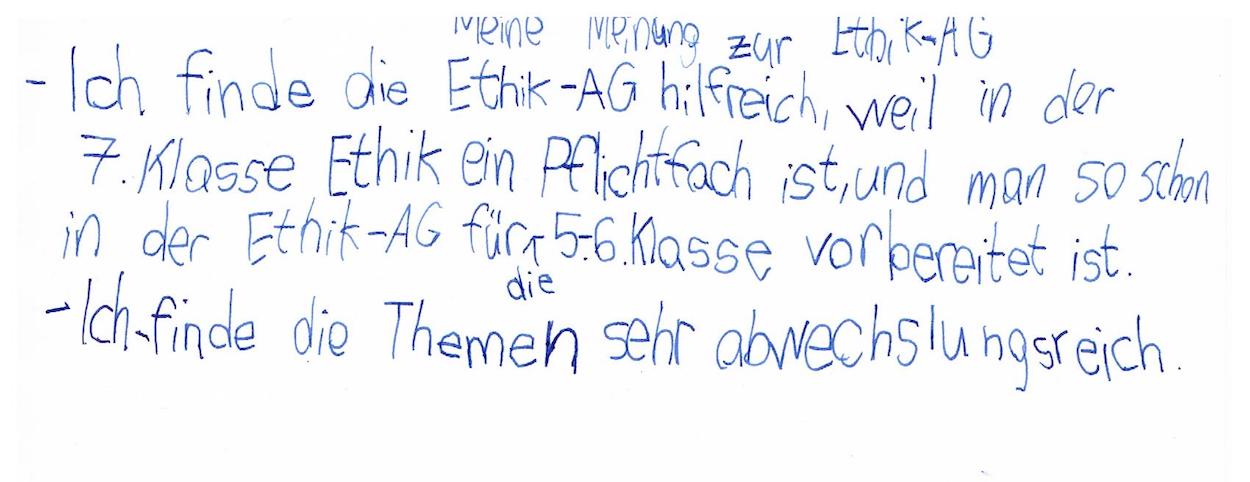 Meine Meinung zur Ethik-AG
- Ich finde die Ethik-AG hilfreich, weil in der
7. Klasse Ethik ein Pflichtfach ist, und man so schon
in der Ethik-AG für die 5.-6. Klasse vorbereitet ist.
- Ich finde die Themen sehr abwechslungsreich.